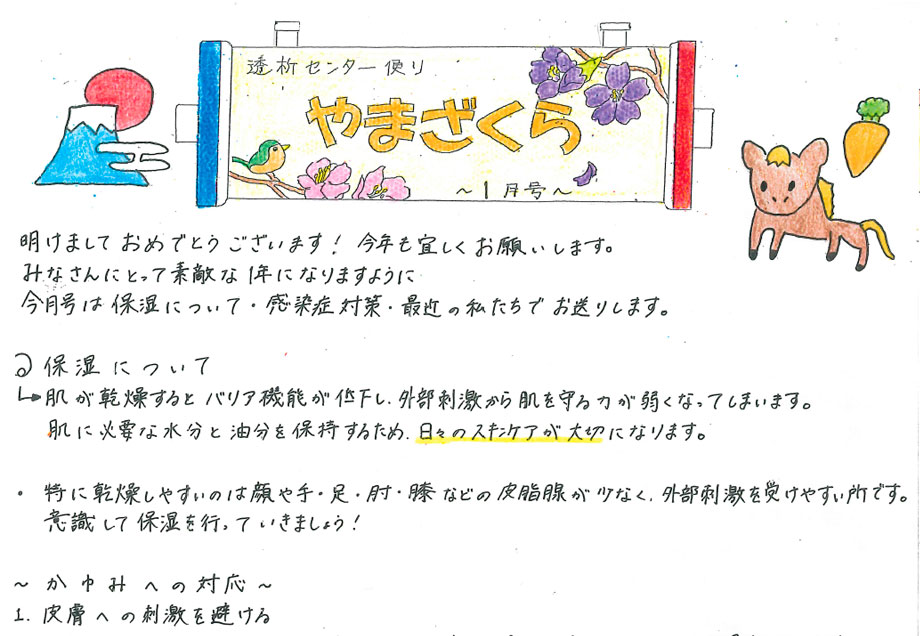 透析センター便り
やまざくら
~1月号~
明けまして おめでとう ございます! 今年も宜しくお願いします。
みなさんにとって素敵な1年になりますように
今月号は保湿について・感染症対策・最近の私たちでお送りします。
保湿について
肌が乾燥するとバリア機能が低下し、外部刺激から肌を守る力が弱くなってしまいます。
肌に必要な水分と油分を保持するため、日々のスキンケアが大切になります。
・特に乾燥しやすいのは顔や手・足・肘・膝などの皮脂腺が少なく、外部刺激を受けやすい所です。
意識して保湿を行っていきましょう!
~かゆみへの対応~
1. 皮膚への刺激を避ける